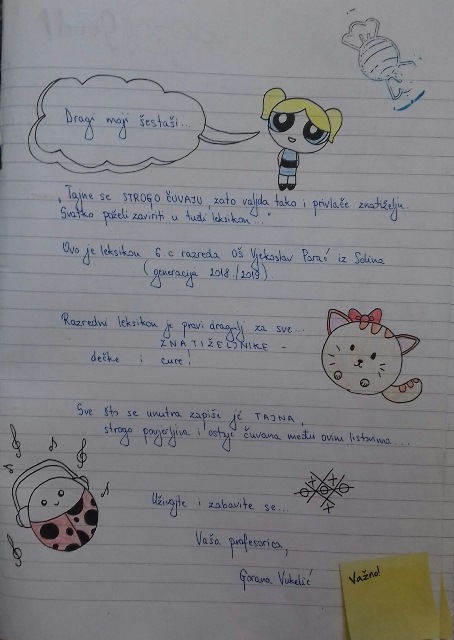 Dragi moji šestaši...
"Tajne se STROGO ČUVAJU, zato valjda tako i privlače znatiželju.
Svatko poželi zaviriti u tuđi leksikon..."
Ovo je leksikon 6.c razreda OŠ Vjekoslav Parać iz Solina
(generacija 2018./2019.)
Razredni leksikon je pravi dragulj za sve...
ZNATIŽELJNIKE -
dečke i cure!
Sve što se unutra zapiše je TAJNA,
strogo povjerljiva i ostaje čuvana među ovim listovima...
Uživajte i zabavite se...
Vaša profesorica,
Gorana Vukelić
Važno!